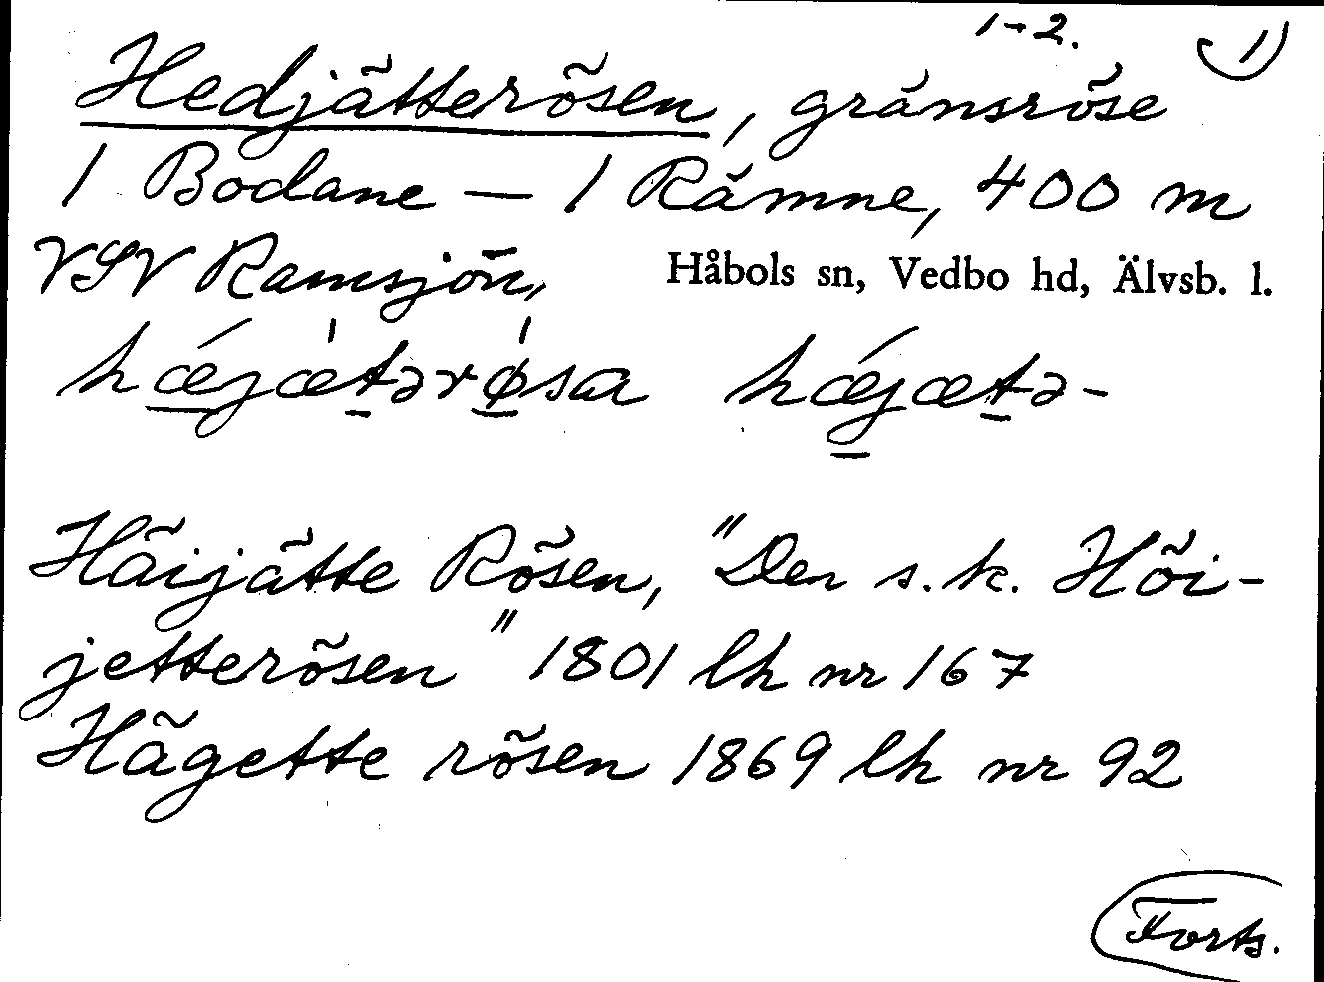 1-2. 1)
Hedjätterösen, gränsröse
1 Bodane — 1 Rämne, 400 m
VSV Ramsjön, Håbols sn, Vedbo hd, Älvsb. l.
hǽjætərøsa hǽjætə-
Häijätte Rösen, "Den s.k. Höi-
jetterösen" 1801 lh nr 167
Hägette rösen 1869 lh nr 92
Forts.